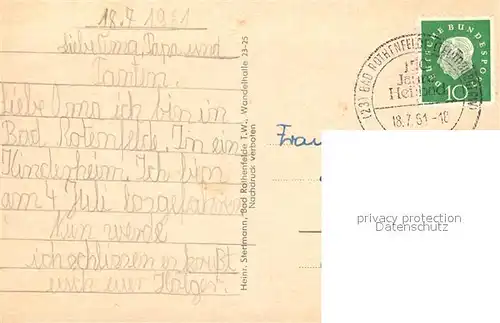 18.7 1961
Liebe Oma, Papa und
Tanten
Liebe Oma ich bin in
Bad Rotenfelde. In ein
Kinderheim. Ich bin
am 4 Juli losgefahren
Nun werde
ich schlissen es grüßt
euch euer Holger.
Heinr. Stertmann, Bad Rothenfelde T.W., Wandelhalle 23-25
Nachdruck verboten
(23) BAD ROTHENFELDE
Jahre
Heilbad
18.7.61-18
DEUTSCHE BUNDESPOST
10
Frau
privacy protection